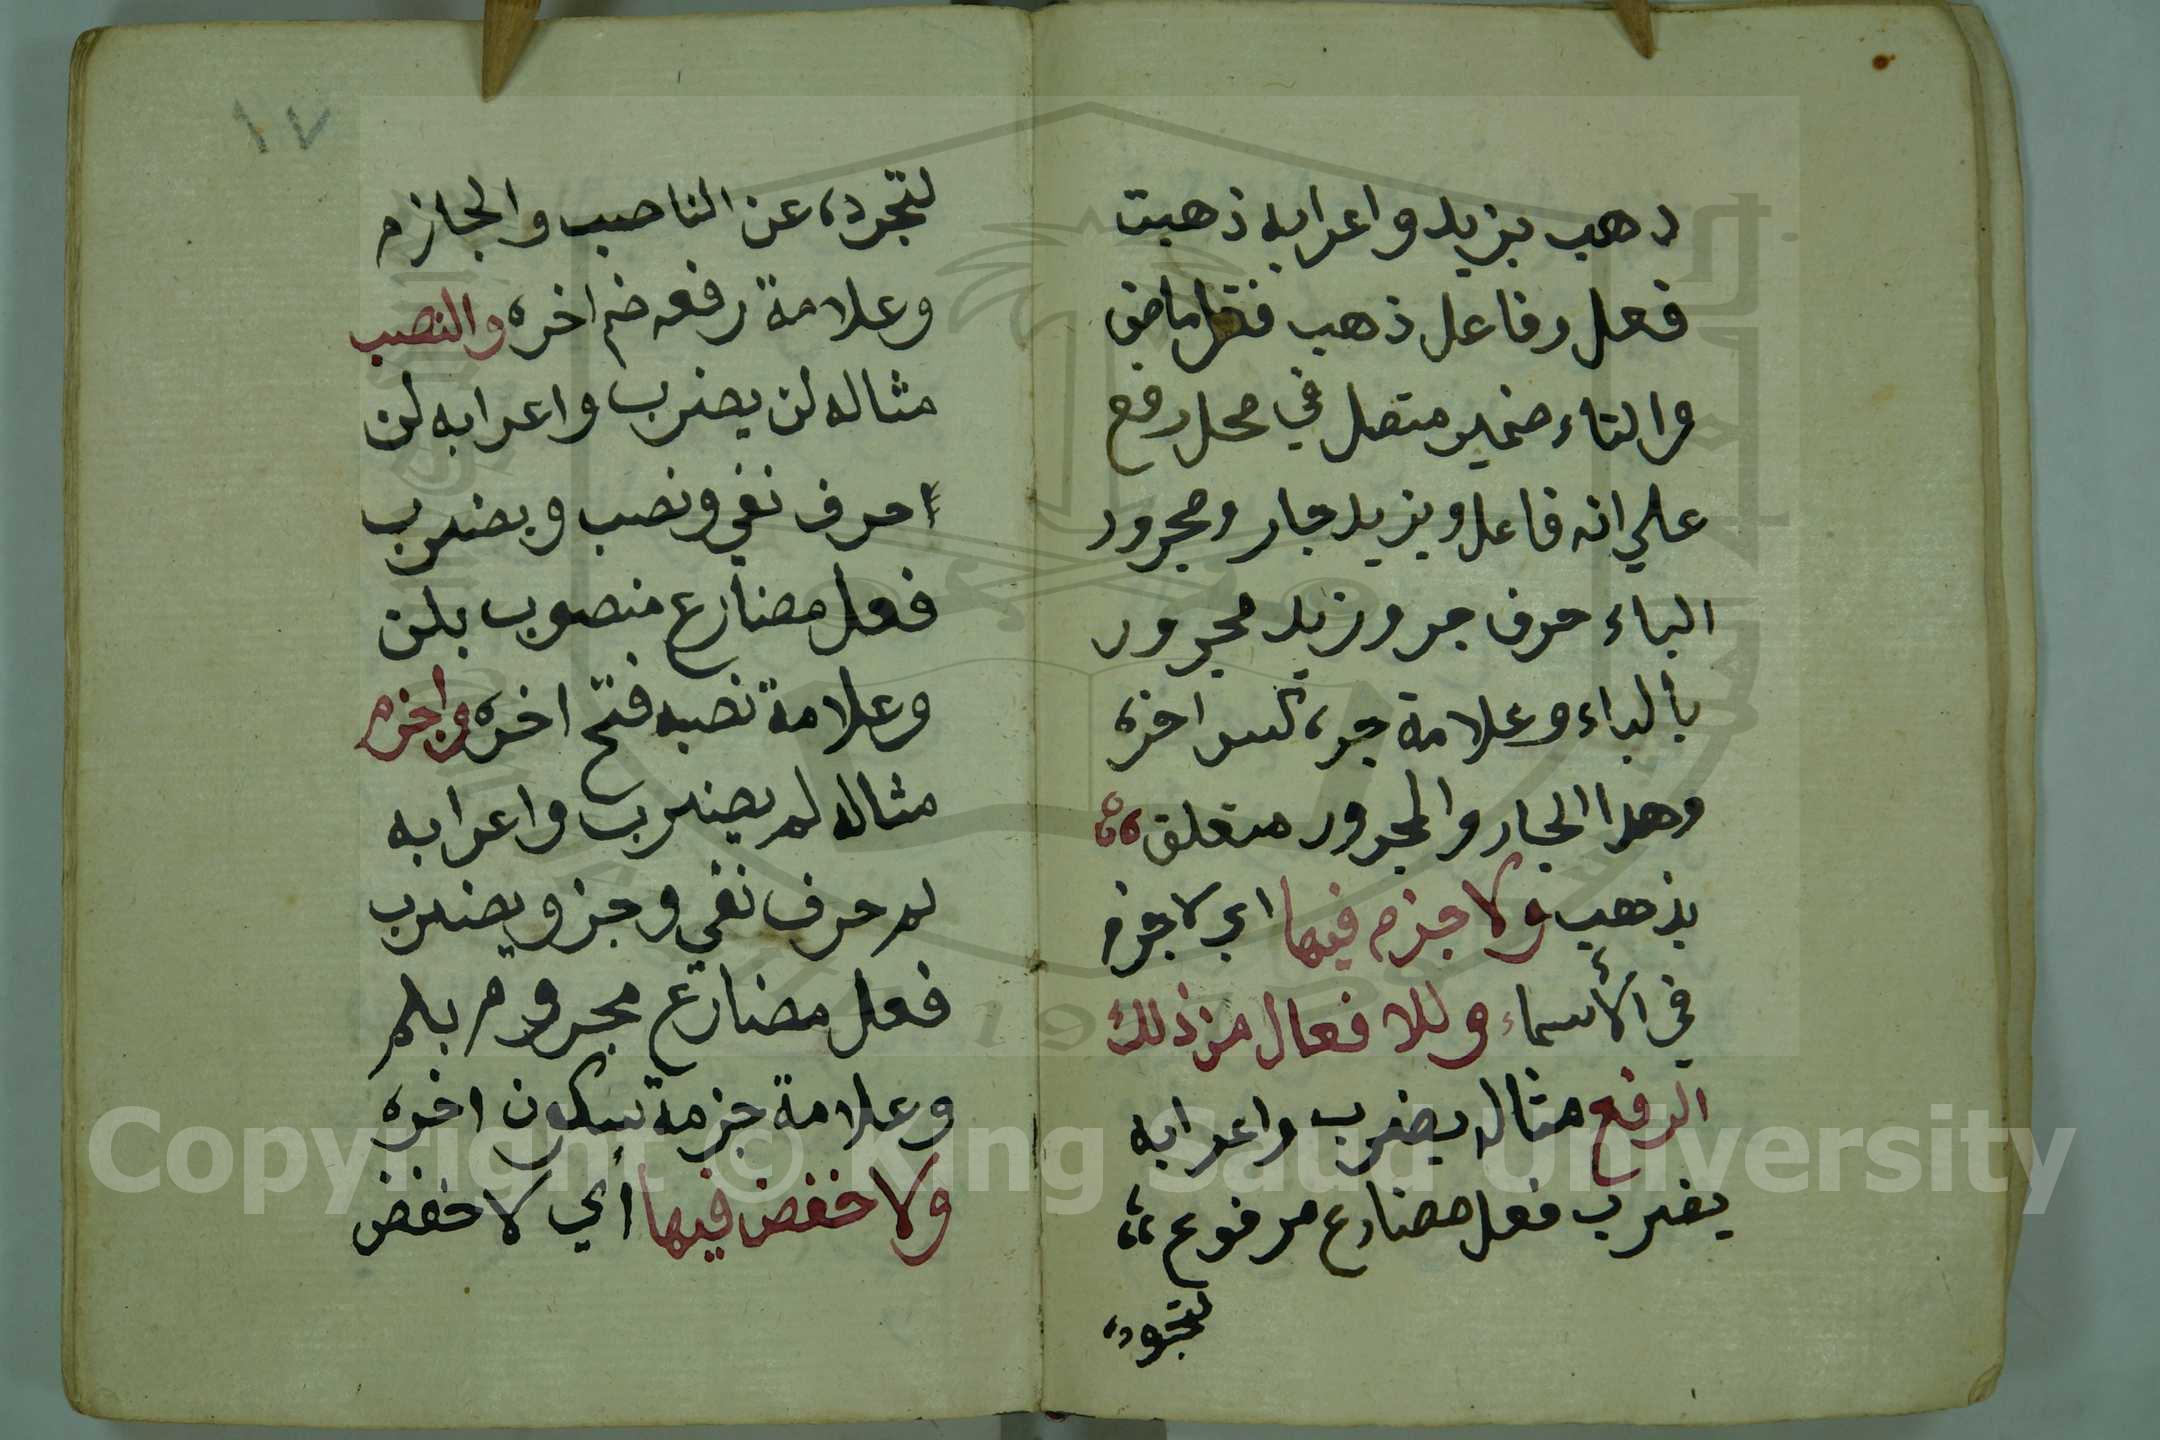 ذهب بزيد واعرابه ذهبت
فعل وفاعل ذهب فعل ماض
والتاء ضمير متصل في محل رفع
علي انه فاعل وبزيد جار ومجرور
الباء حرف جر وزيد مجرور
بالباء وعلامة جره كسر اخره
وهذا الجار والمجرور متعلق
بذهب ولا جزم فيها اي لا جزم
في الأسماء وللافعال من ذلك
الرفع مثاله يضرب واعرابه
يضرب فعل مضارع مرفوع
لتجرده
١٧
لتجرده عن الناصب والجازم
وعلامة رفعه ضم اخره والنصب
مثاله لن يضرب واعرابه لن
حرف نفي ونصب ويضرب
فعل مضارع منصوب بلن
وعلامة نصبه فتح اخره والجزم
مثاله لم يضرب واعرابه
لم حرف نفي وجز ويضرب
فعل مضارع مجزوم بلم
وعلامة جزمة سكون اخره
ولا خفض فيها اي لا خفض
Copyright © King Saud University